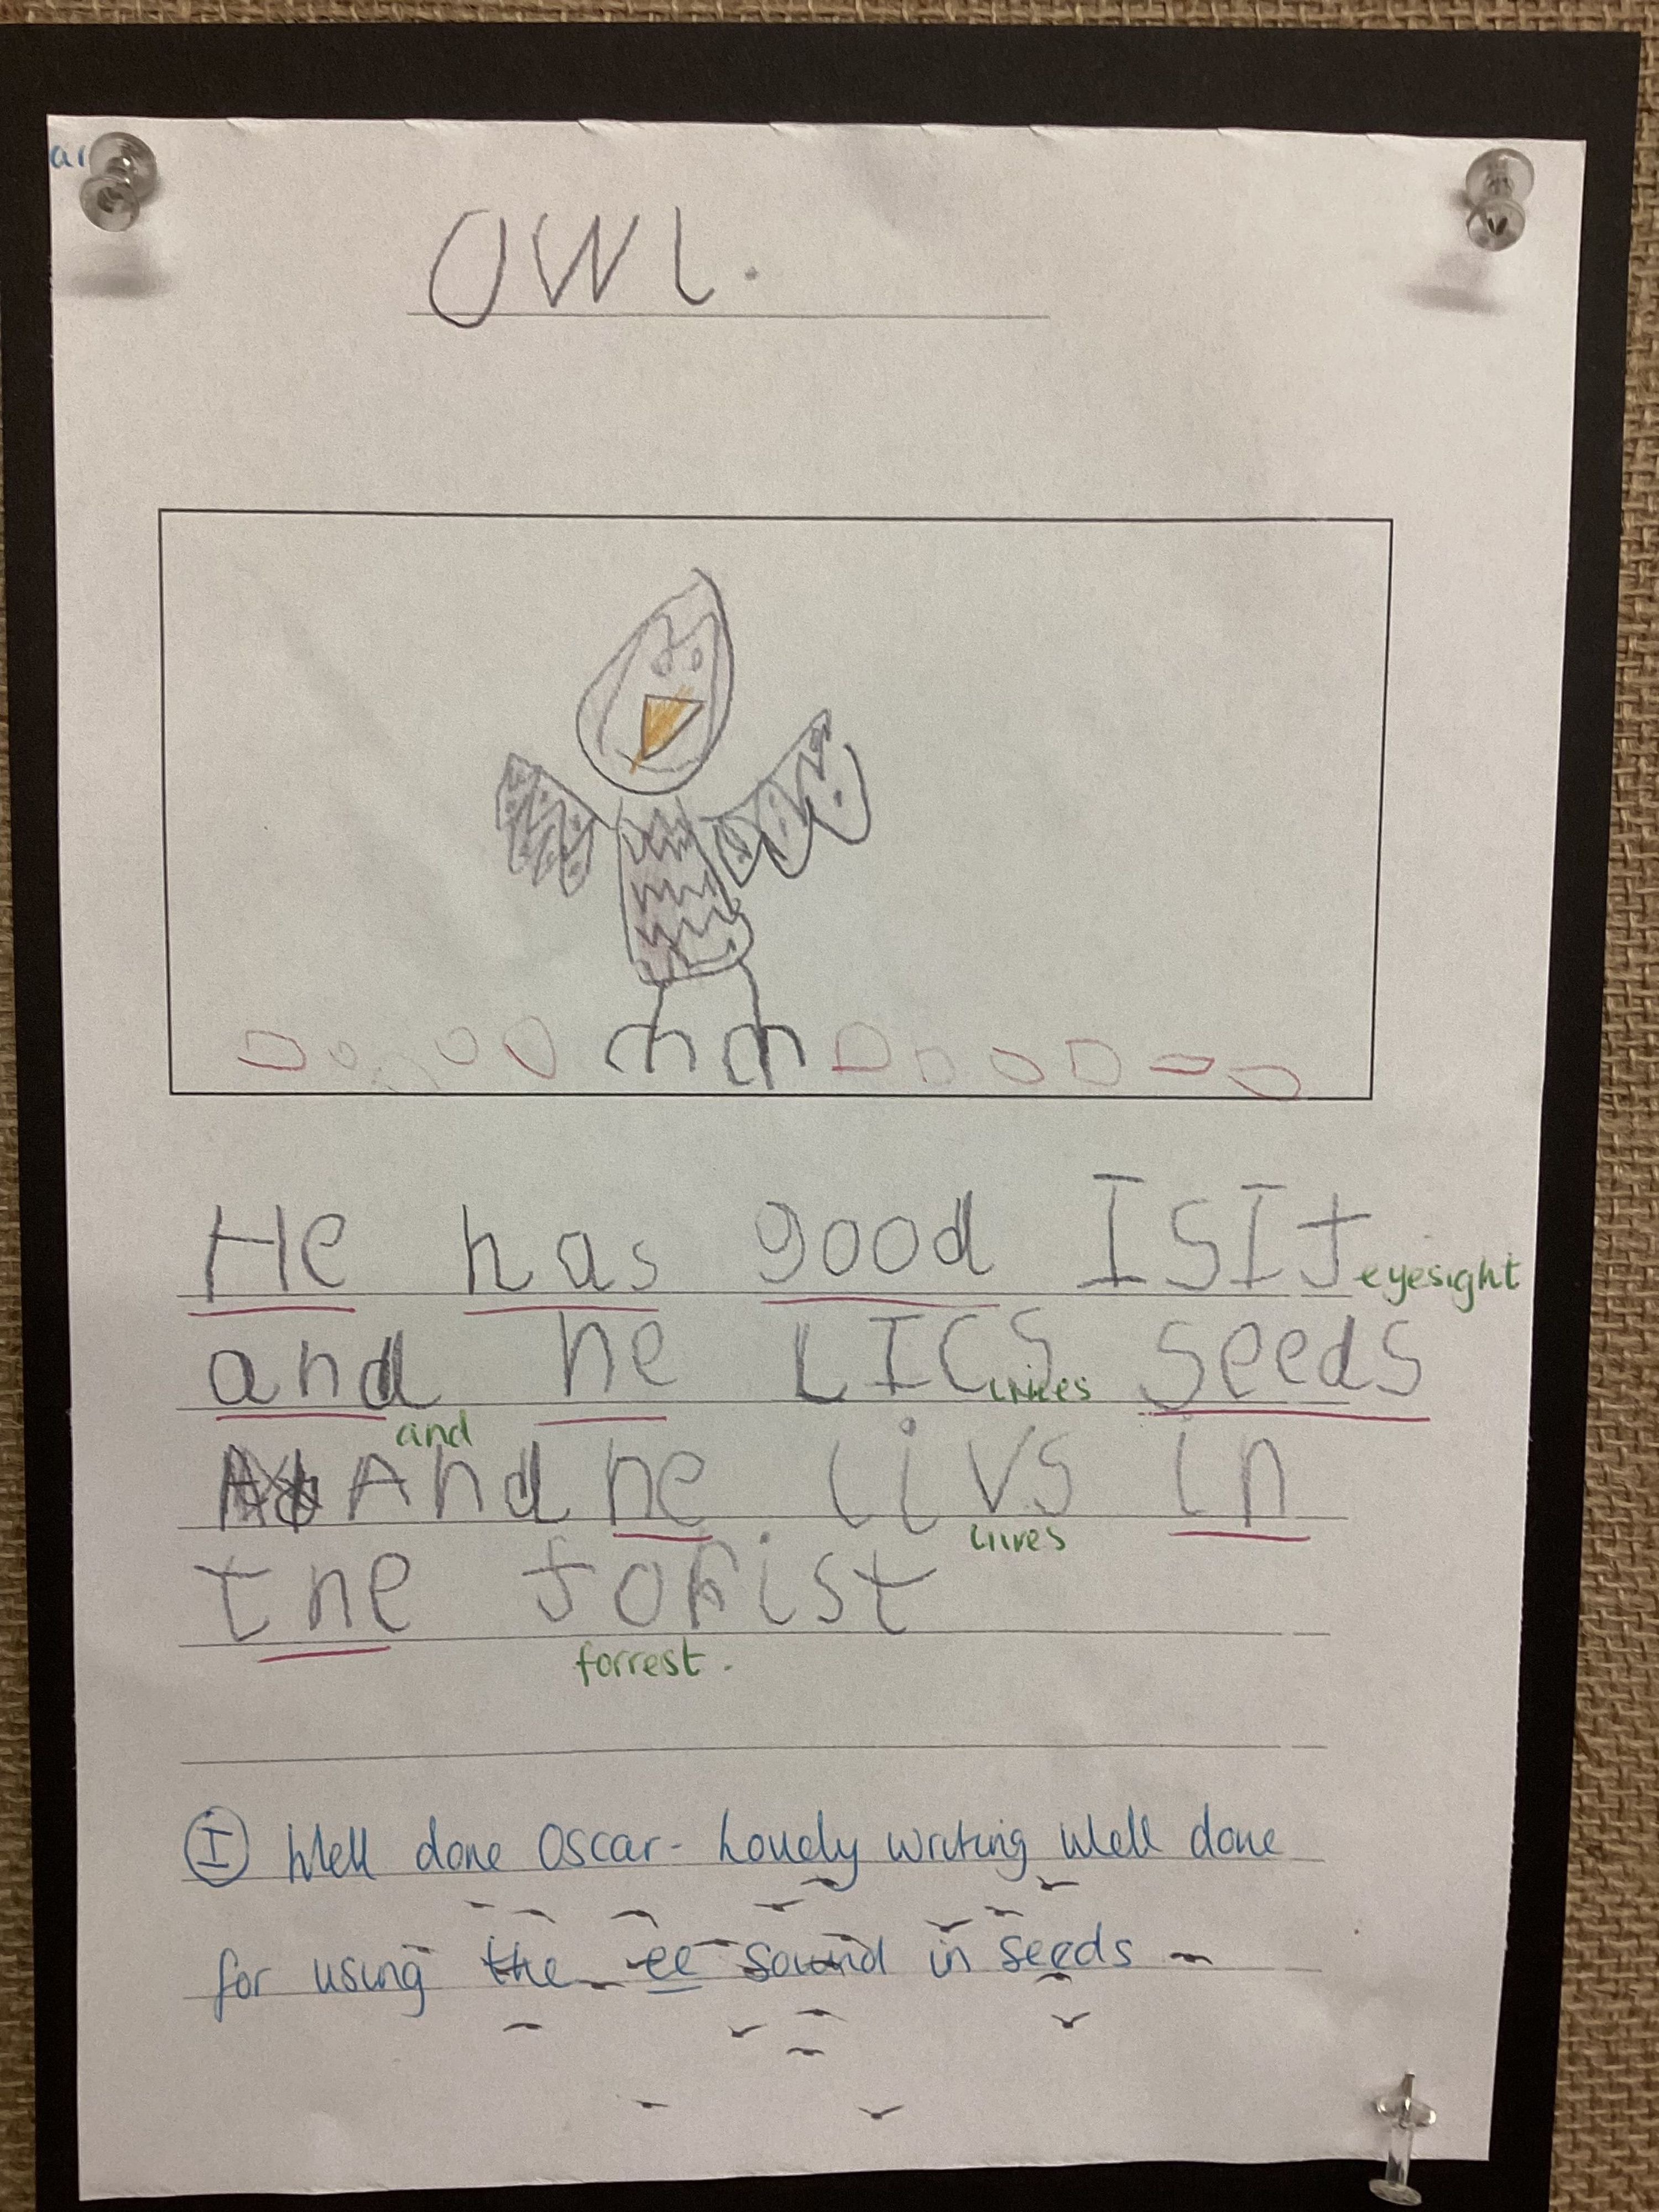 ar
OWL.
He has good ISIt eyesight
and he LICS likes seeds
and
And he livs in
lives
the forist
forrest.
I Well done Oscar - Lovely writing Well done
for using the ee sound in seeds